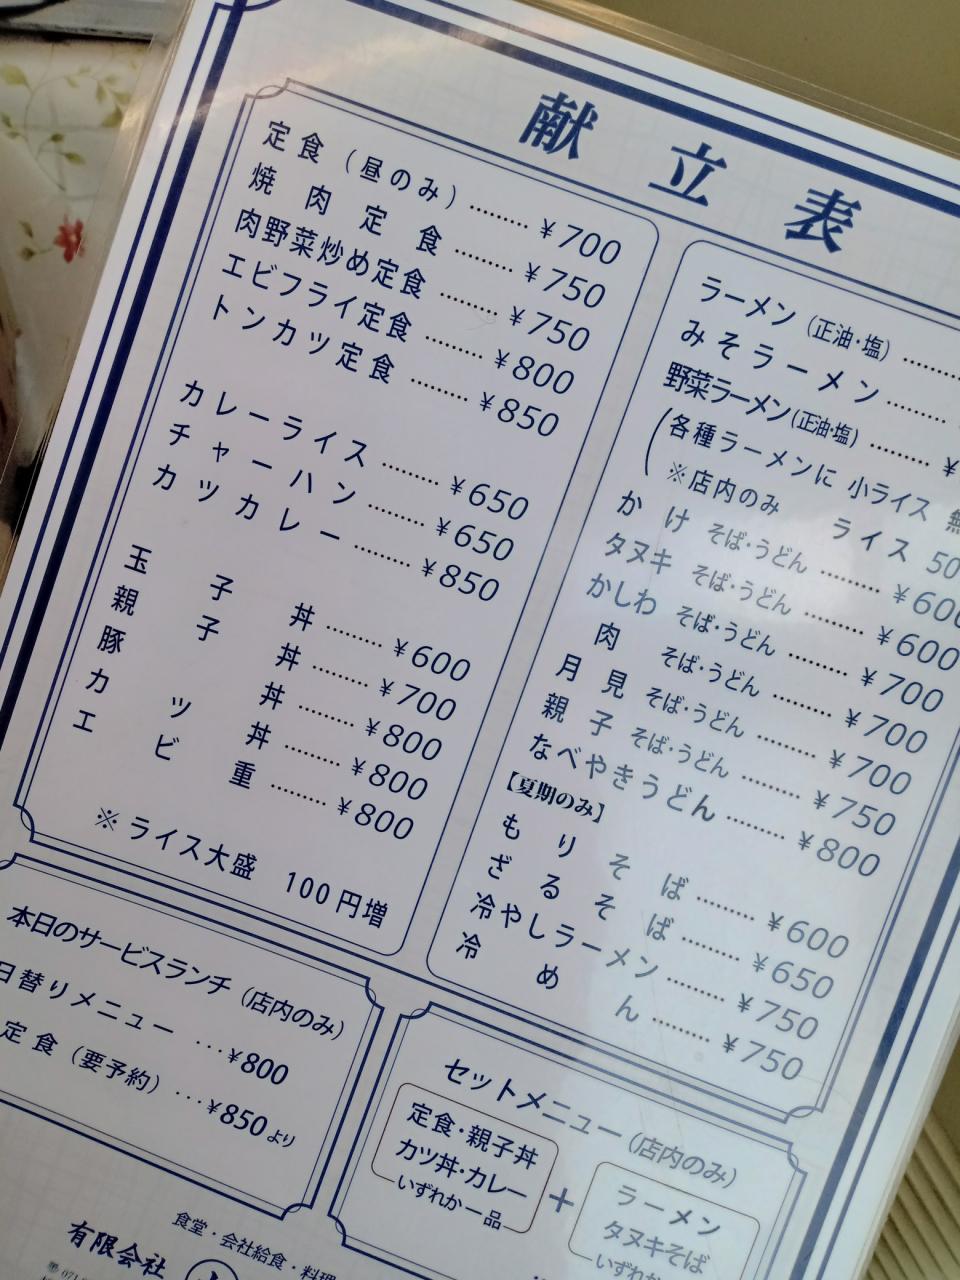 献立表
定食（昼のみ）………¥700
焼肉定食………¥750
肉野菜炒め定食………¥750
エビフライ定食………¥800
トンカツ定食………¥850
カレーライス………¥650
チャーハン………¥650
カツカレー………¥850
玉子丼………¥600
親子丼………¥700
豚丼………¥800
カツ丼………¥800
エビ重………¥800
※ライス大盛 100円増
ラーメン（正油・塩）………
みそラーメン………
野菜ラーメン（正油・塩）………¥
（各種ラーメンに 小ライス
※店内のみ ライス 50
かけ そば・うどん………¥600
タヌキ そば・うどん………¥600
かしわ そば・うどん………¥700
肉 そば・うどん………¥700
月見 そば・うどん………¥700
親子 そば・うどん………¥750
なべやきうどん………¥800
【夏期のみ】
もりそば………¥600
ざるそば………¥650
冷やしラーメン………¥750
冷めん………¥750
本日のサービスランチ（店内のみ）
日替りメニュー…¥800
定食（要予約）…¥850より
セットメニュー（店内のみ）
定食・親子丼
カツ丼・カレー
いずれか一品
＋
ラーメン
タヌキそば
いずれか
食堂・会社給食・料理
有限会社